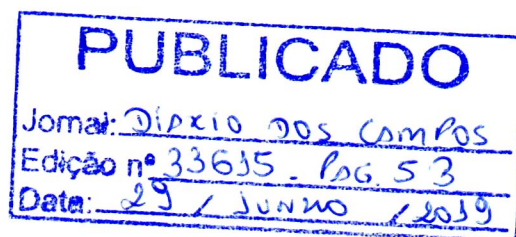 PUBLICADO
Jornal: DIÁRIO DOS CAMPOS
Edição nº 33615 - PÁG. 53
Data: 29 / JUNHO / 2019